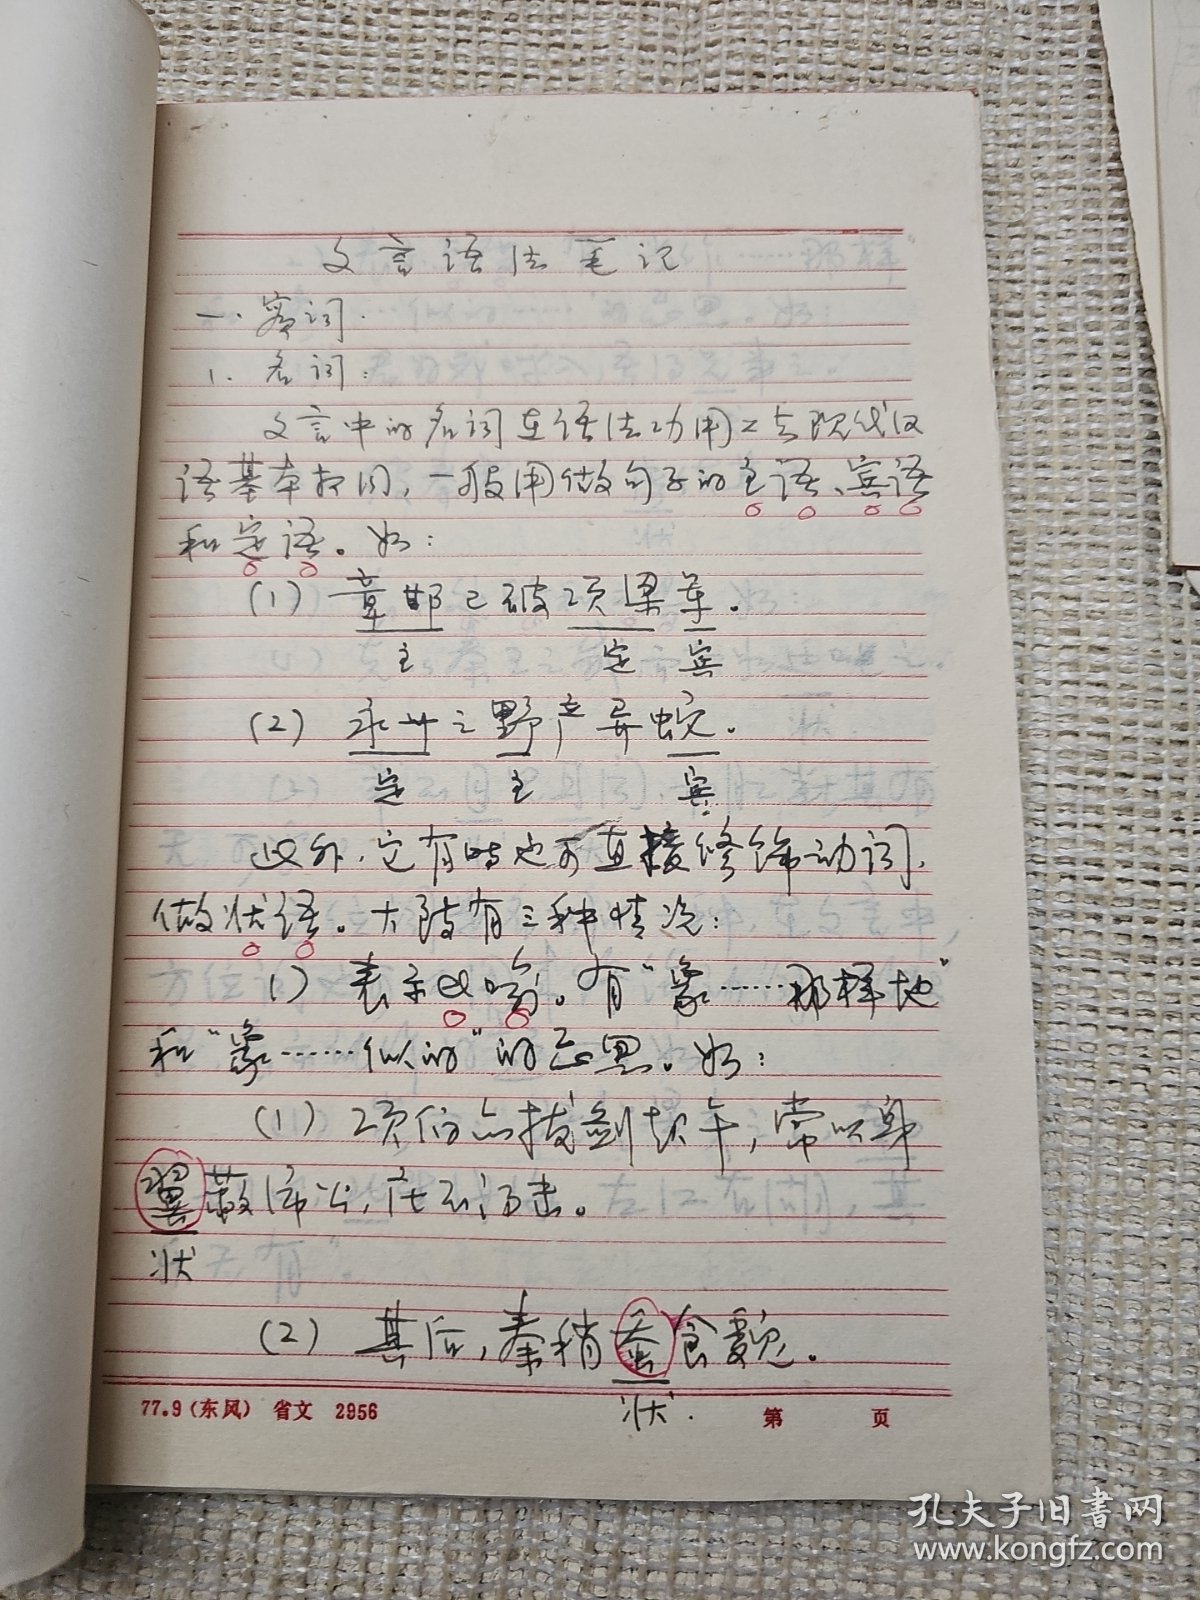 文言语法笔记
一. 实词.
1. 名词:
文言中的名词在语法功用上与现代汉
语基本相同, 一般用做句子的主语、宾语
和定语。如:
(1) 章邯已破项梁军。
主 定 宾
(2) 永州之野产异蛇。
定 主 宾
此外, 它有时也可直接修饰动词,
做状语。大段有三种情况:
1) 表示比喻。有“象……那样地”
和“象……似的”的意思。如:
(1) 项伯亦拔剑起午, 常以身
翼蔽沛公, 庄不得击。
状
(2) 其后, 秦稍蚕食魏。
状.
77.9(东风) 省文 2956 第 页
孔夫子旧书网
www.kongfz.com